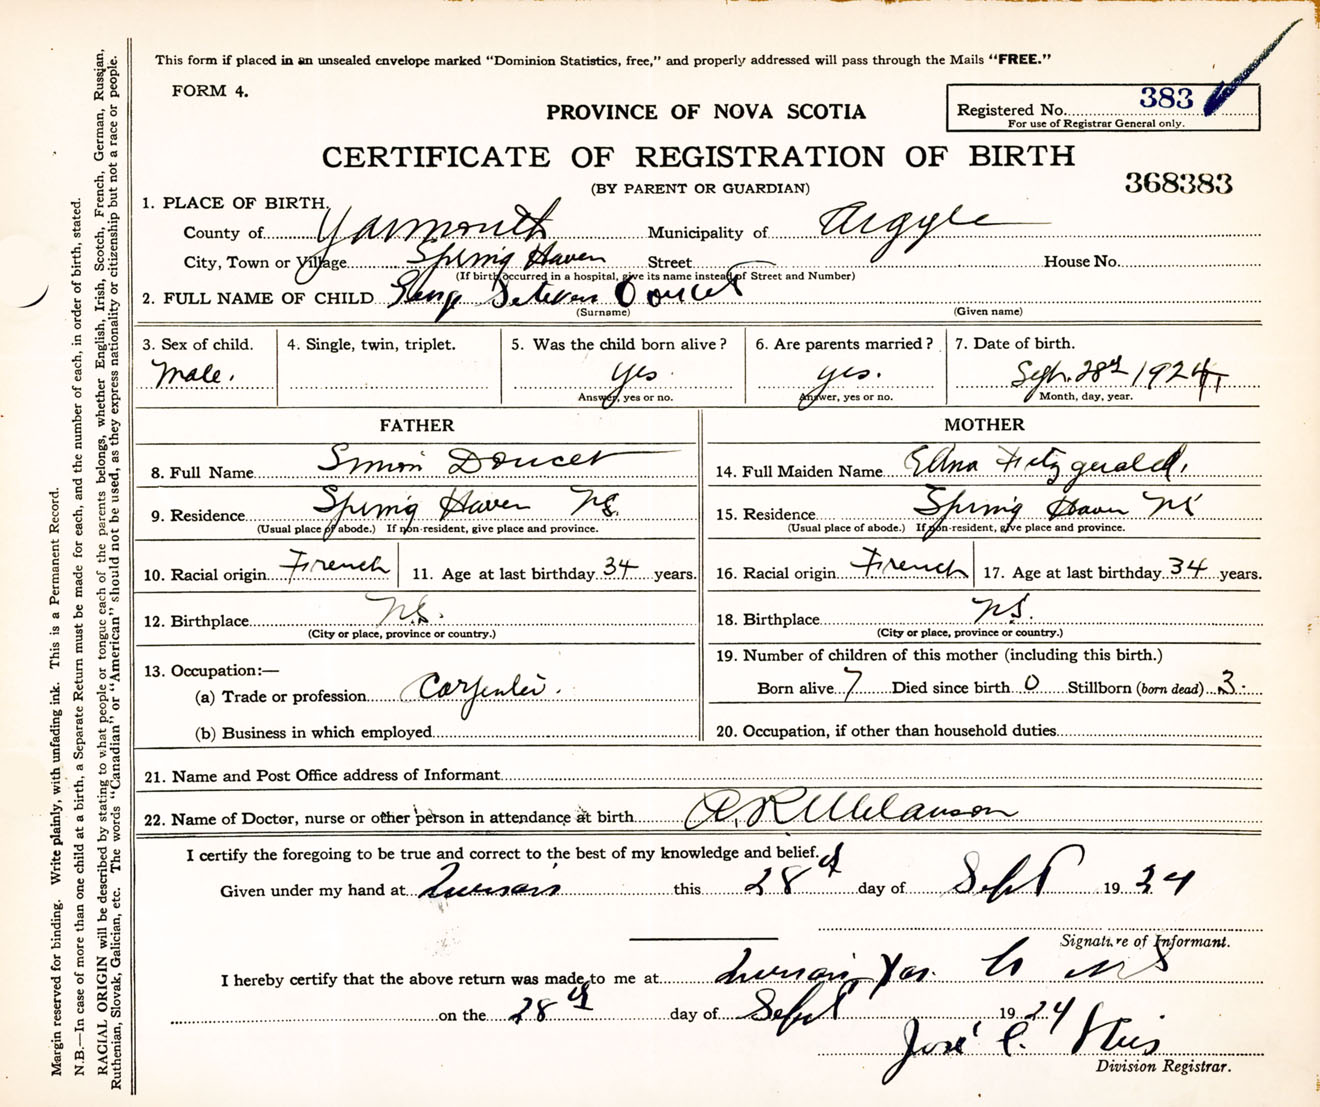 This form if placed in an unsealed envelope marked "Dominion Statistics, free," and properly addressed will pass through the Mails "FREE."
FORM 4.
PROVINCE OF NOVA SCOTIA
Registered No. 383
For use of Registrar General only.
CERTIFICATE OF REGISTRATION OF BIRTH
(BY PARENT OR GUARDIAN)
368383
1. PLACE OF BIRTH.
County of Yarmouth Municipality of Argyle
City, Town or Village Spring Haven Street House No.
(If birth occurred in a hospital, give its name instead of Street and Number)
2. FULL NAME OF CHILD Doucet
(Surname) (Given name)
3. Sex of child. 4. Single, twin, triplet. 5. Was the child born alive? 6. Are parents married? 7. Date of birth.
Male. yes. yes. Sept. 28th 1924
Answer, yes or no. Answer, yes or no. Month, day, year.
FATHER MOTHER
8. Full Name Simon Doucet 14. Full Maiden Name Edna Fitzgerald.
9. Residence Spring Haven N.S. 15. Residence Spring Haven NS
(Usual place of abode.) If non-resident, give place and province. (Usual place of abode.) If non-resident, give place and province.
10. Racial origin French 11. Age at last birthday 34 years. 16. Racial origin French 17. Age at last birthday 34 years.
12. Birthplace N.S. 18. Birthplace N.S.
(City or place, province or country.) (City or place, province or country.)
13. Occupation:— 19. Number of children of this mother (including this birth.)
(a) Trade or profession Carpenter. Born alive 7 Died since birth 0 Stillborn (born dead) 3.
(b) Business in which employed 20. Occupation, if other than household duties
21. Name and Post Office address of Informant
22. Name of Doctor, nurse or other person in attendance at birth A. R. Melanson
I certify the foregoing to be true and correct to the best of my knowledge and belief.
Given under my hand at this 28th day of Sept 1924
Signature of Informant.
I hereby certify that the above return was made to me at Yar. Co NS
on the 28th day of Sept 1924
Division Registrar.
Margin reserved for binding. Write plainly, with unfading ink. This is a Permanent Record.
N.B.—In case of more than one child at a birth, a Separate Return must be made for each, and the number of each, in order of birth, stated.
RACIAL ORIGIN will be described by stating to what people or tongue each of the parents belongs, whether English, Irish, Scotch, French, German, Russian,
Ruthenian, Slovak, Galician, etc. The words "Canadian" or "American" should not be used, as they express nationality or citizenship but not a race or people.